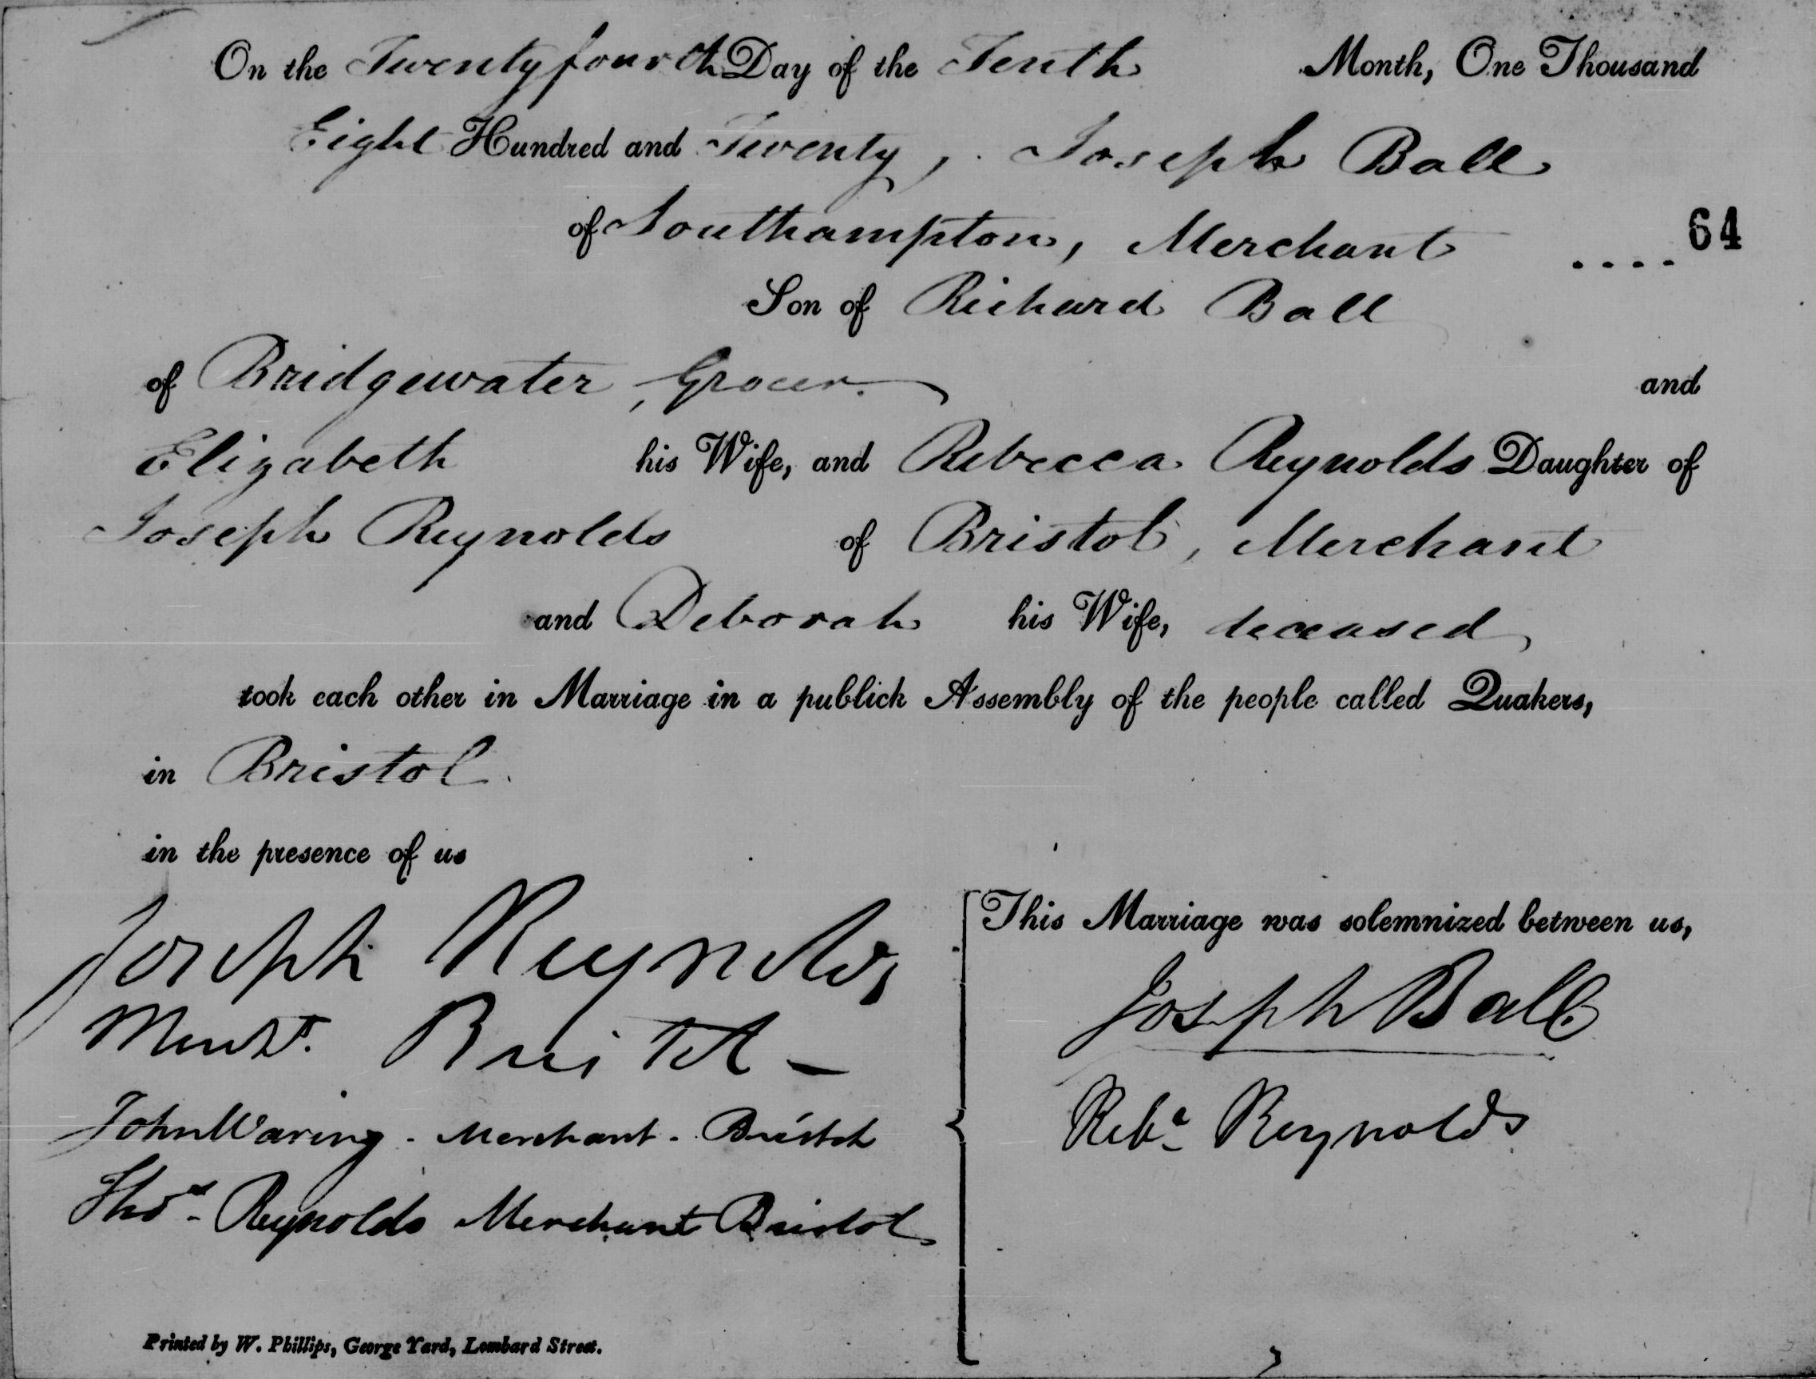 On the Twenty fourth Day of the Tenth Month, One Thousand
Eight Hundred and Twenty, Joseph Ball
of Southampton, Merchant .... 64
Son of Richard Ball
of Bridgewater, Grocer. and
Elizabeth his Wife, and Rebecca Reynolds Daughter of
Joseph Reynolds of Bristol, Merchant
and Deborah his Wife, deceased,
took each other in Marriage in a publick Assembly of the people called Quakers,
in Bristol.
in the presence of us
Joseph Reynolds
Mercht. Bristol –
John Waring - Merchant - Bristol
Thos. Reynolds Merchant Bristol
This Marriage was solemnized between us,
Joseph Ball
Reba Reynolds
Printed by W. Phillips, George Yard, Lombard Street.